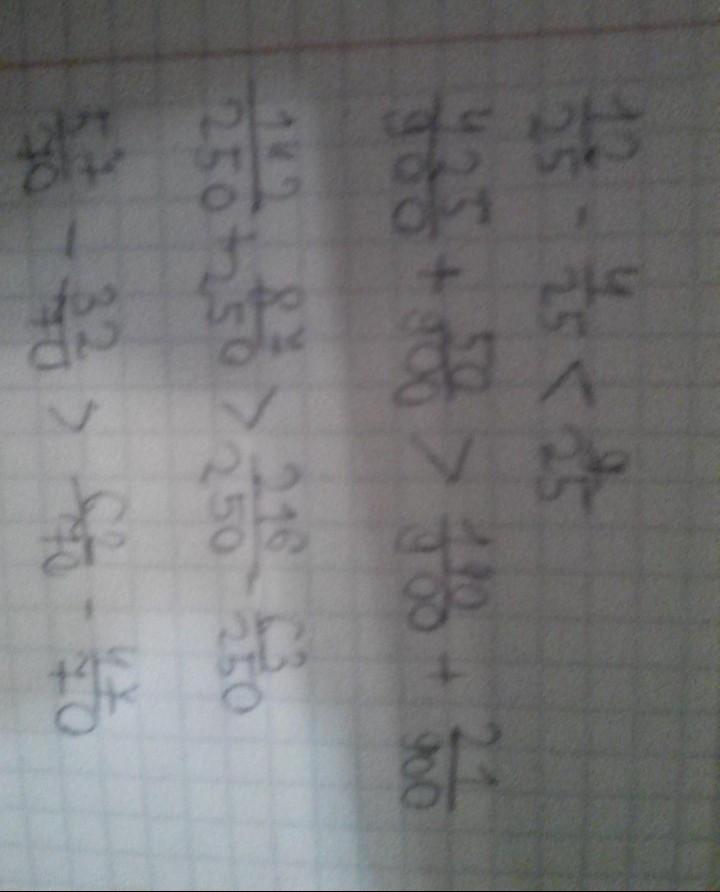 12/25 - 4/25 < 9/25
425/900 + 50/900 > 190/900 + 21/900
142/250 + 84/250 > 216/250 - 63/250
57/70 - 32/70 > 69/70 - 47/70